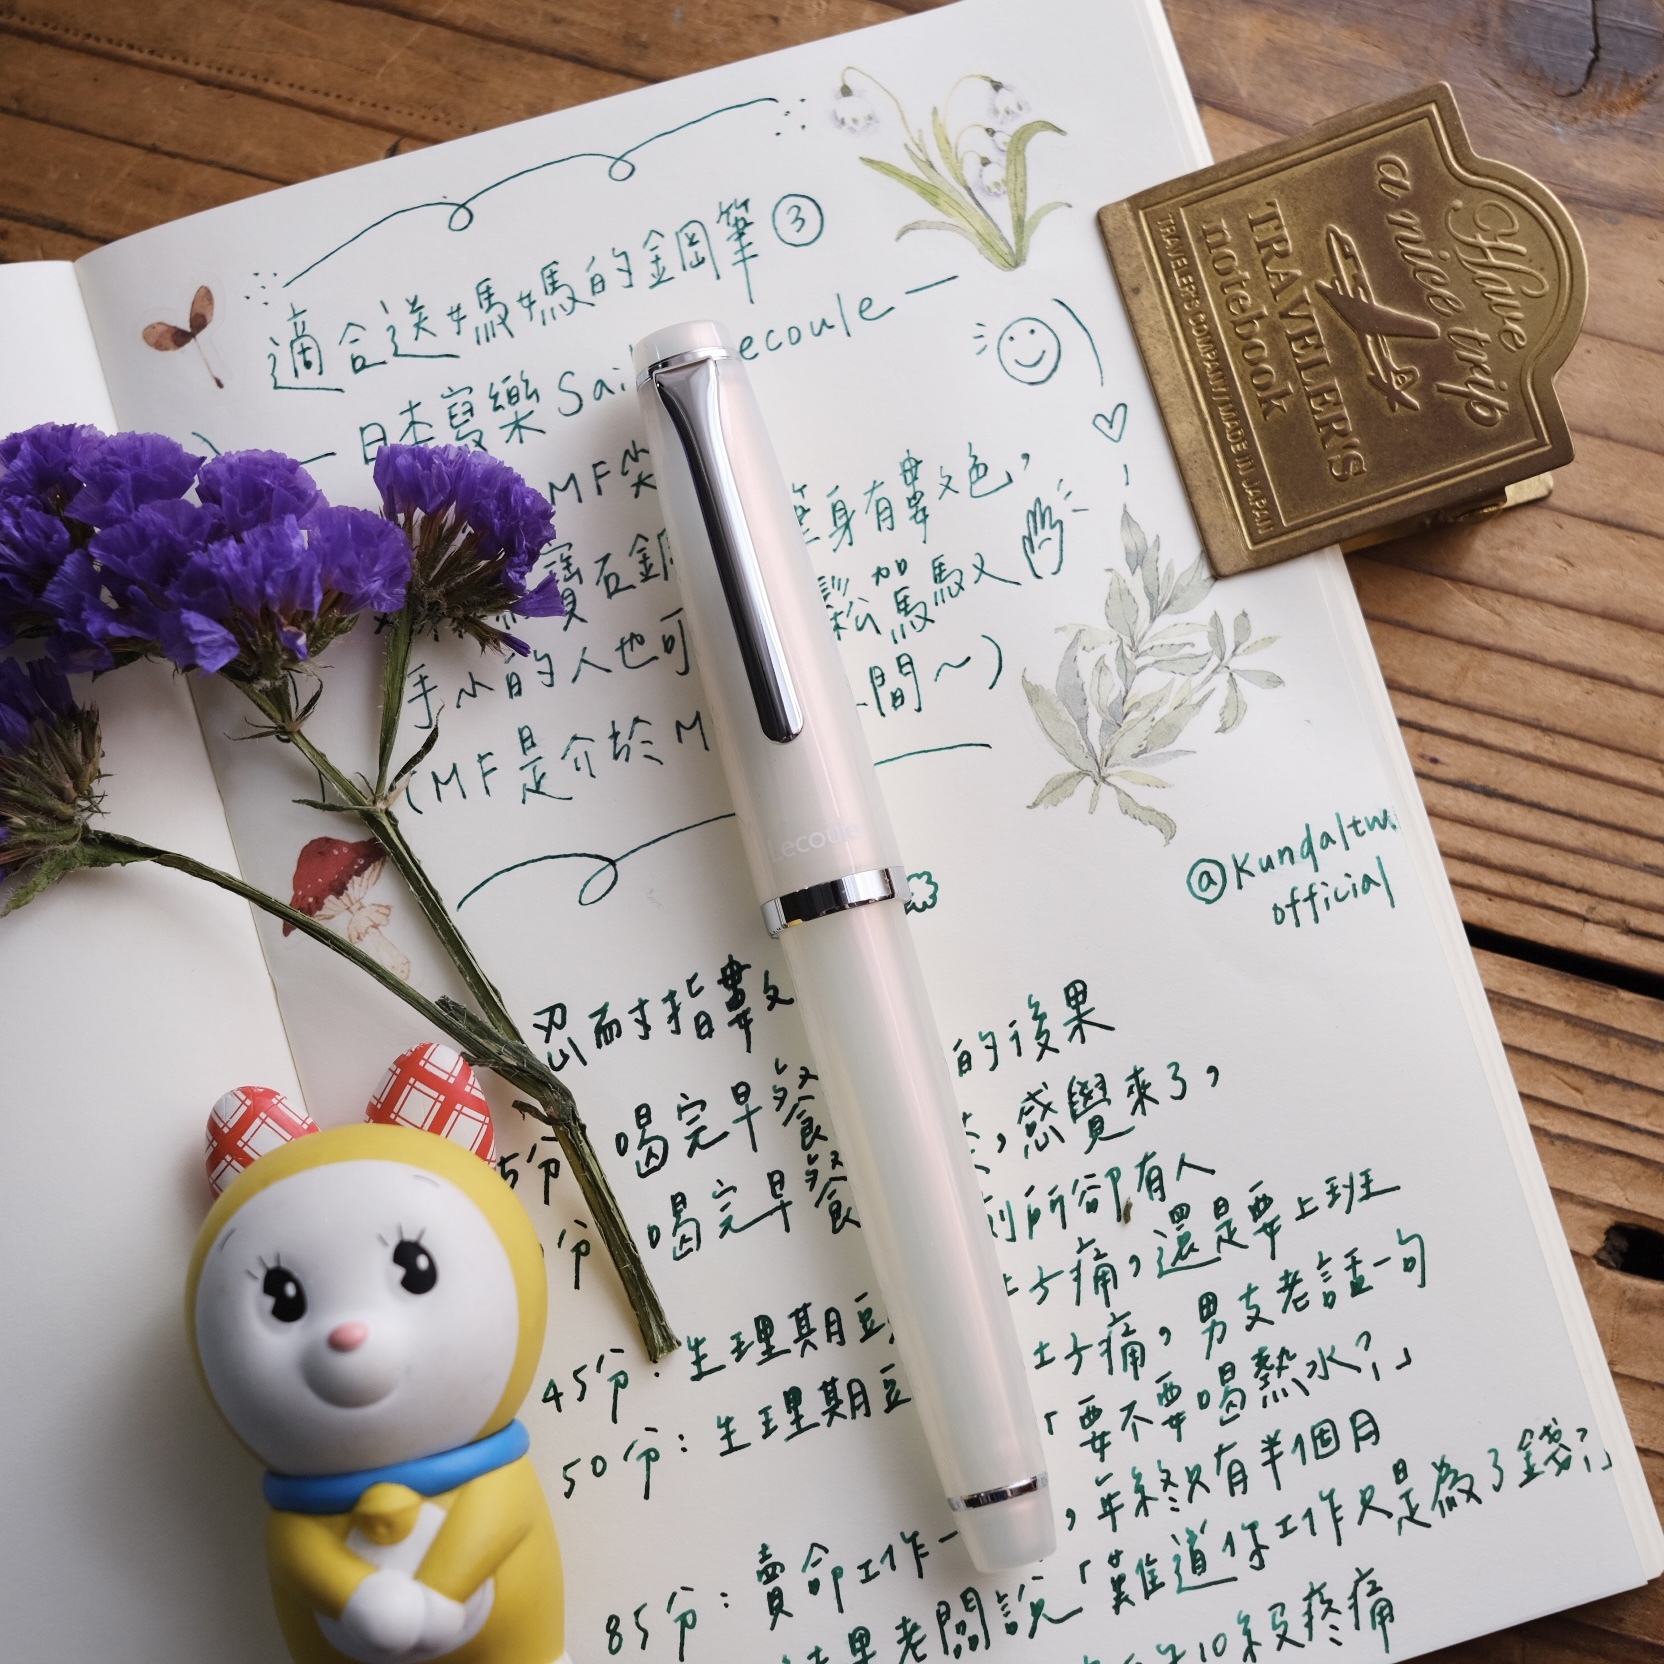 適合送媽媽的鋼筆③
— 日本寫樂 Sai ecoule —
MF尖 筆身有數色,
寶石鋼 鬆加馬馭
手小的人也可
(MF是介於M 間~)
@Kundaltw.
official
忍耐指數 的後果
5分 喝完早餐 ,感覺來了,
分 喝完早餐 所卻有人
45分:生理期 痛,還是要上班
50分:生理期 痛,男友老話一句
「要不要喝熱水?」
85分:賣命工作一 ,年終只有半個月
結果老闆說「難道你工作只是為了錢?」
10級疼痛
Lecoule
Have
a nice trip
TRAVELER'S
notebook
TRAVELER'S COMPANY MADE IN JAPAN